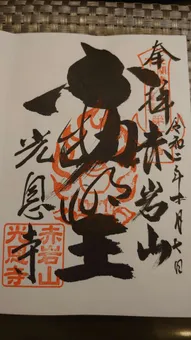 奉拝 赤岩山
令和二年十月七日
不動明王
光恩寺
赤岩山
光恩寺